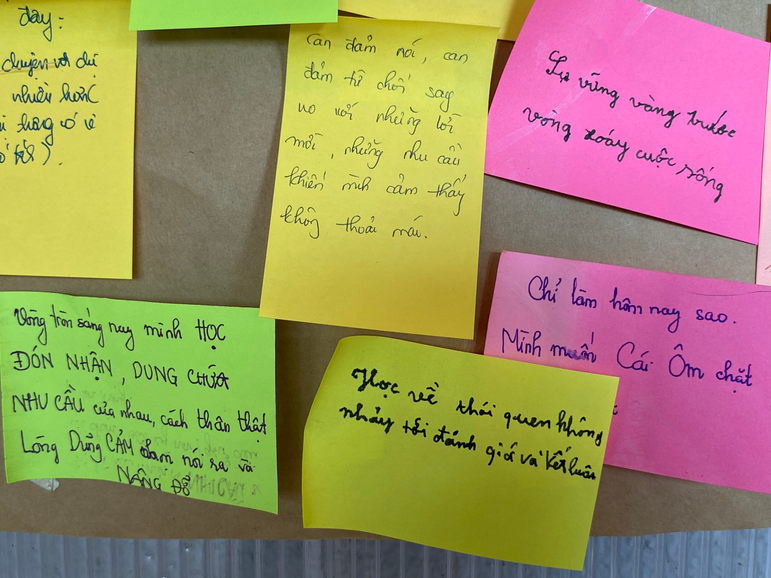 đây:
chuyện với dị
nhiên hơn(
Can đảm nói, can
đảm từ chối say
no với những lời
mời, những nhu cầu
khiến mình cảm thấy
không thoải mái.
Sự vững vàng trước
vòng xoáy cuộc sống
Vòng tròn sáng nay mình HỌC
ĐÓN NHẬN, DUNG CHỨA
NHU CẦU của nhau, cách thân thật
Lòng Dũng CẢM dám nói ra và
NÂNG ĐỠ
Học về thói quen không
nhảy tới đánh giá và kết luận
Chỉ làm hôm nay sao.
Mình muốn Cái Ôm chặt